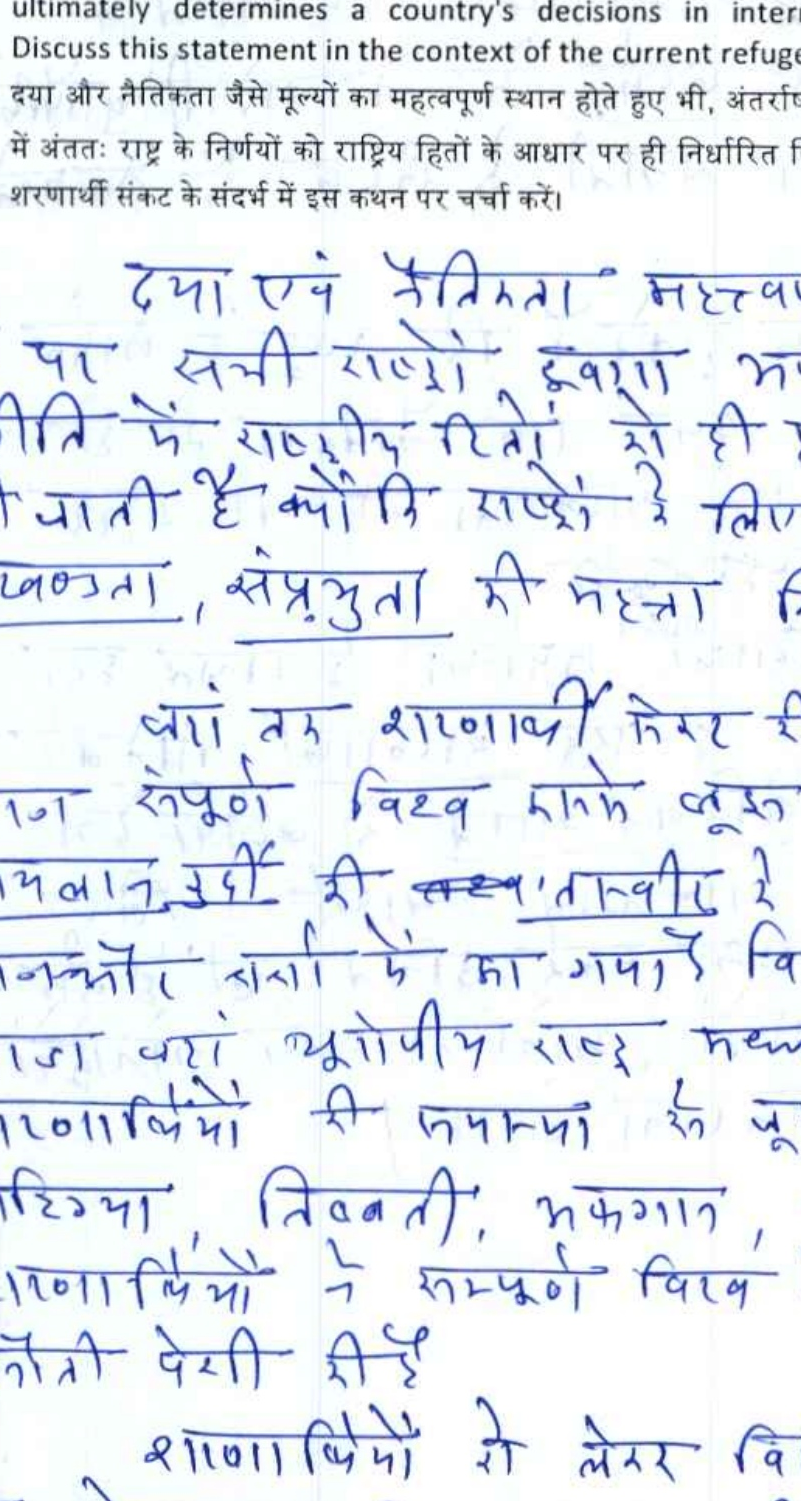 ultimately determines a country's decisions in inter
Discuss this statement in the context of the current refuge
दया और नैतिकता जैसे मूल्यों का महत्वपूर्ण स्थान होते हुए भी, अंतर्राष
में अंततः राष्ट्र के निर्णयों को राष्ट्रिय हितों के आधार पर ही निर्धारित
शरणार्थी संकट के संदर्भ में इस कथन पर चर्चा करें।
दया एवं नैतिकता महत्त्वा
पर सभी राष्ट्रों द्वारा अप
नीति में राष्ट्रीय हितों को ही
जाती है क्योंकि राष्ट्रों के लिए
खण्डता, संप्रभुता की महत्ता
जहां तक शरणार्थी संकट की
संपूर्ण विश्व इससे जूझ
यलान कुर्दी की तस्वीर के
चर्चा में आ गया है वि
जहां यूरोपीय राष्ट्र मध्य
रणार्थियों की समस्या से जू
हिंग्या, तिब्बती, अफगान,
रणार्थियों ने सम्पूर्ण विश्व
नौती पेश की है
शरणार्थियों को लेकर वि